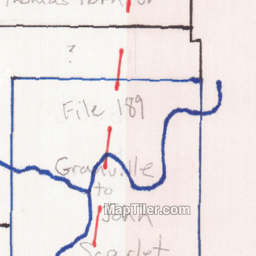 Thomas
?
File 189
Granville
to
John
Scarlet
MapTiler.com